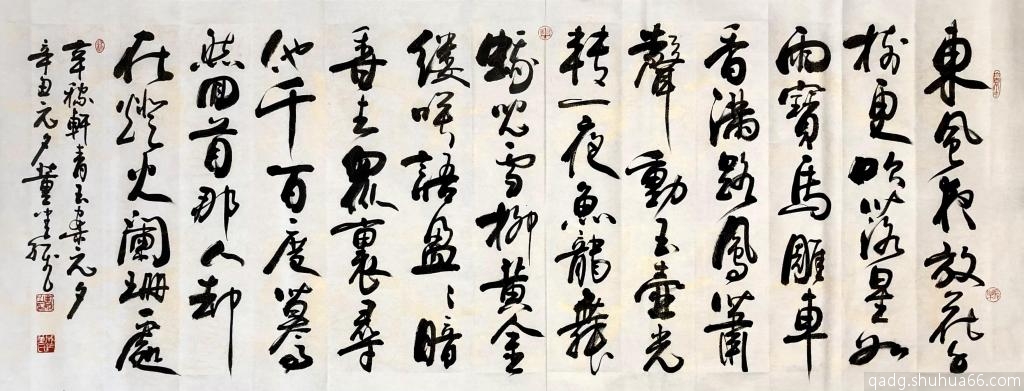 東風夜放花千
樹更吹落星如
雨寶馬雕車
香滿路鳳簫
聲動玉壺光
轉一夜魚龍舞
蛾兒雪柳黃金
縷笑語盈〻暗
香去眾裏尋
他千百度驀
然回首那人却
在燈火闌珊處
辛稼軒青玉案元夕
辛丑元夕董
qadg.shuhua66.com